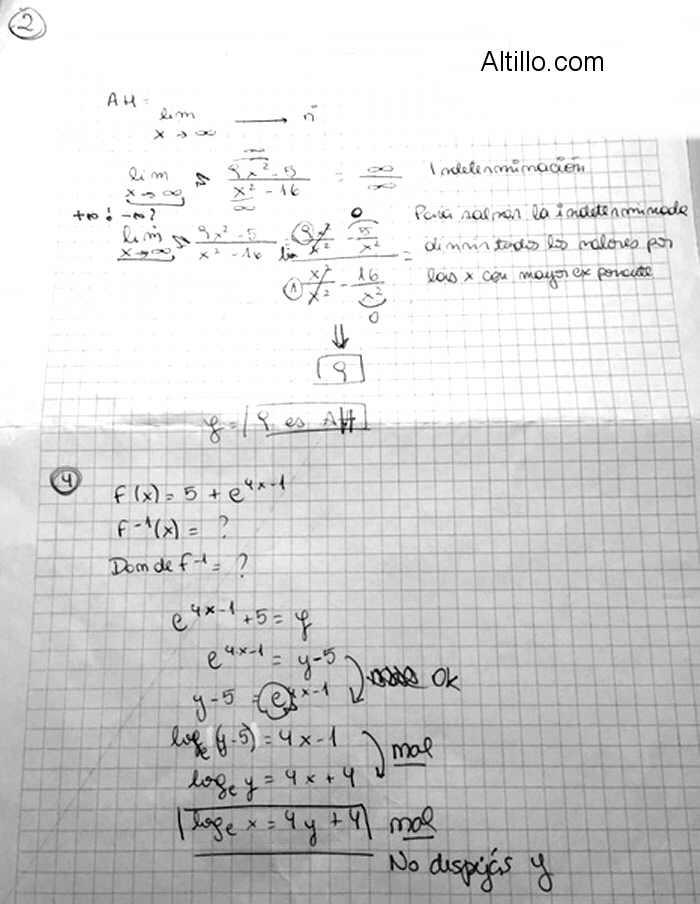 2
Altillo.com
AH:
lim x → ∞ → n̄
lim x → ∞ 9x² - 5 / x² - 16 = ∞ / ∞ Indeterminación
+∞ -∞?
lim x → ∞ 9x² - 5 / x² - 16 = lim 9x²/x² - 5/x² / x²/x² - 16/x² =
0
1
0
Para salvar la indeterminada
dividir todos los valores por
las x con mayor exponente
⇓
9
y = 9 es AH
4
f(x) = 5 + e^4x-1
f^-1(x) = ?
Dom de f^-1 = ?
e^4x-1 + 5 = y
e^4x-1 = y-5
y-5 = e^4x-1 Ok
log_e (y-5) = 4x-1
log_e y = 4x+4 mal
log_e x = 4y+4 mal
No despejás y